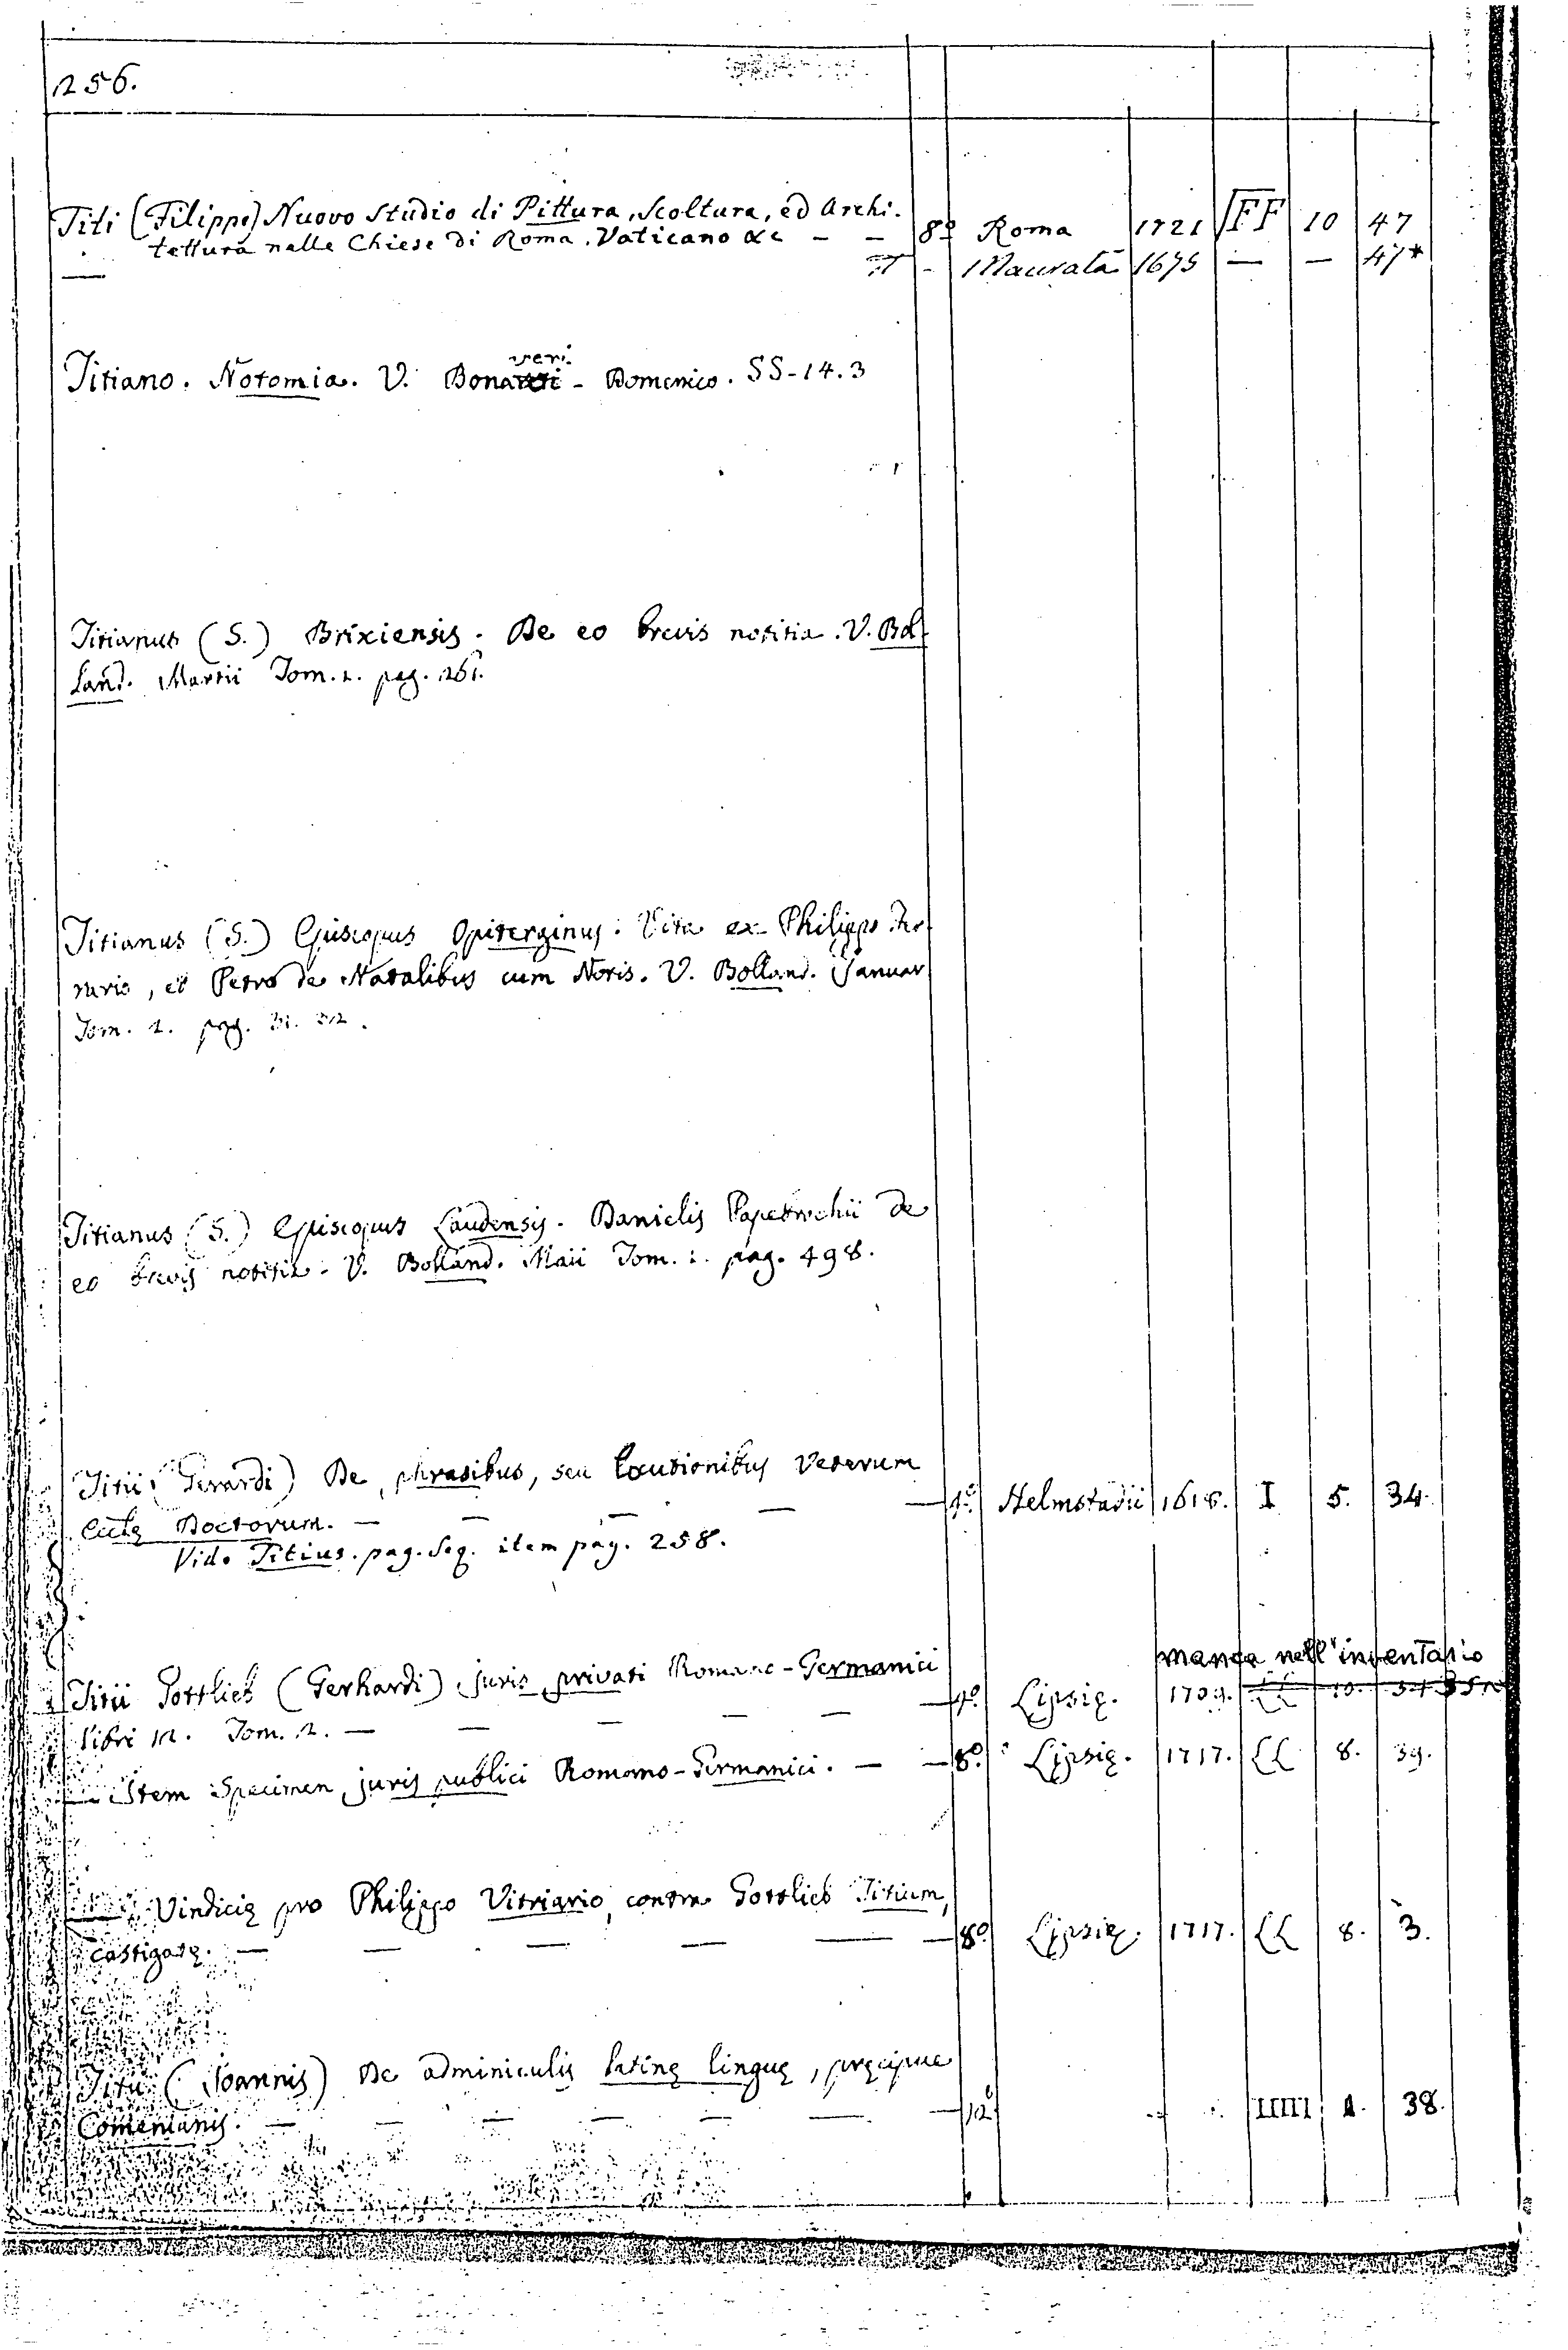 256.
Titi (Filippo) Nuovo Studio di Pittura, Scoltura, ed Archi-
tettura nelle Chiese di Roma. Vaticano &c — — 8º Roma 1721 FF 10 47
— - Macerata 1675 — — 47*
veri
Titiano. Notomia. V. Bona - Domenico. SS-14.3
Titianus (S.) Brixiensis. De eo brevis notitia. V. Bol-
land. Martii Tom. 1. pag. 261.
Titianus (S.) Episcopus Opiterginus. Vita ex Philippo Fer-
rario, et Petro de Natalibus cum Notis. V. Bolland. Januar
Tom. 2. pag.
Titianus (S.) Episcopus Laudensis. Danielis Papebrochii de
eo brevis notitia. V. Bolland. Maii Tom. 1. pag. 498.
Titii (Gerardi) De phrasibus, seu locutionibus Veterum
Eccle Doctorum. — — — — — 4º Helmstadii I 5. 34.
Vide Titius. pag. seq. item pag. 258.
manca nell'inventario
Titii Gottlieb (Gerhardi) juris privati Romano-Germanici
libri 12. Tom. 2. — — — — — 4º Lipsię. 1709. LL 10.
— Item Specimen juris publici Romano-Germanici. — — 8º Lipsię. 1717. LL 8. 39.
— Vindicię pro Philippo Vitriario, contra Gottlieb Titium,
castigatę. — — — — — — 8º Lipsię. 1717. LL 8. 3.
Titii (Joannis) De adminiculis latinę linguę, pręcipue
Comenianis. — — — — — — 12º IIIII 1. 38.